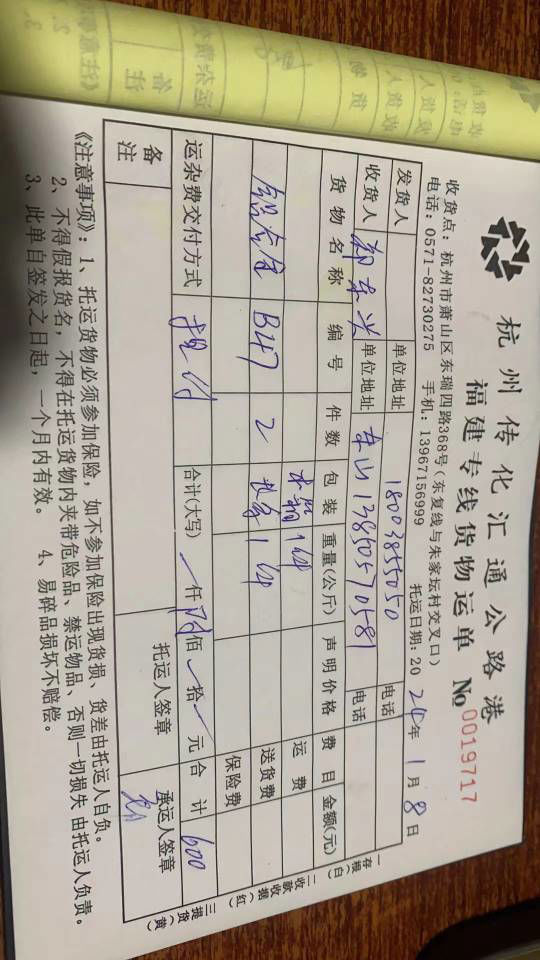 杭州传化汇通公路港
福建专线货物运单 No 0019717
收货点：杭州市萧山区东瑞四路368号(东复线与朱家坛村交叉口)
电话：0571-82730275 手机：13967156999 托运日期：2024年1月8日
发货人 单位地址 18003855050 电话
收货人 单位地址 东山13850570581 电话
货物名称 编号 件数 包装 重量(公斤) 声明价格 费目 金额(元)
木箱 1件 运费
B47 2 1件 送货费
保险费
运杂费交付方式 提付 合计(大写) 仟 陆佰 拾 元 合计 600
备注 托运人签章 承运人签章
《注意事项》：1、托运货物必须参加保险，如不参加保险出现货损、货差由托运人自负。
2、不得假报货名，不得在托运货物内夹带危险品、禁运物品、否则一切损失由托运人负责。
3、此单自签发之日起，一个月内有效。 4、易碎品损坏不赔偿。
一存根(白) 二收款收据(红) 三提货(黄)